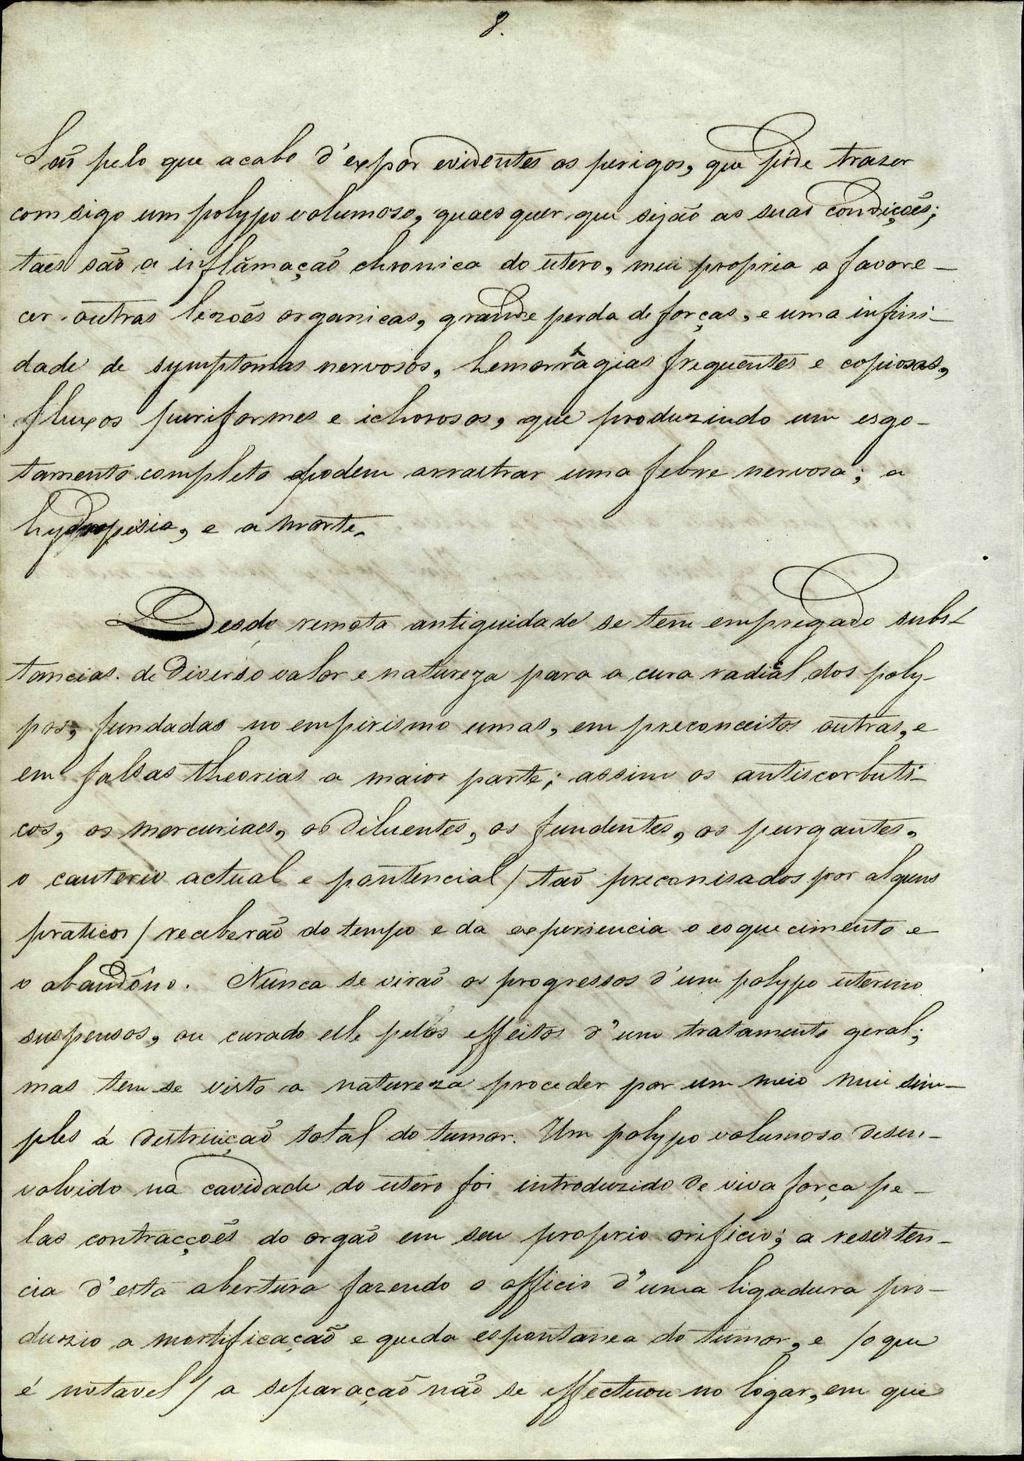 8.
São pelo que acabo d'expor evidentes os perigos, que pode traser
comsigo um polypo volumoso, quaes quer que sejão as suas condições;
taes são a inflãmação chronica do utero, mui propria a favore-
cer outras lezoẽs organicas, grande perda de forças, e uma infini-
dade de symptomas nervosos, hemorrhagias frequentes e copiosas,
fluxos puriformes e ichorosos, que produzindo um esgo-
tamento completo podem arrastrar uma febre nervosa; a
hydropisia, e a morte.
Desde remota antiguidade se tem empregado subs-
tancias de diverso valor e natureza para a cura radical dos poly-
pos, fundadas no empirismo umas, em preconceitos outras, e
em falsas theorias a maior parte; assim os antiscorbuti-
cos, os mercuriaes, os diluentes, os fundentes, os purgantes,
o cauterio actual e pontencial / taõ preconisados por alguns
praticos / receberão do tempo e da experiencia o esquecimento e
o abandôno. Nunca se virão os progressos d'um polypo uterino
suspensos, ou curado elle pelos effeitos d'um tratamento geral;
mas tem-se visto a natureza proceder por um meio mui sim-
ples á destruiçaõ total do tumor. Um polypo volumoso desen-
volvido na cavidade do utero foi introduzido de viva força pe-
las contracções do orgão em seu proprio orificio; a resisten-
cia d'esta abertura fazendo o officio d'uma ligadura pro-
duzio a mortificação e queda espontanea do tumor, e / o que
é notavel / a separação não se effectuou no logar, em que